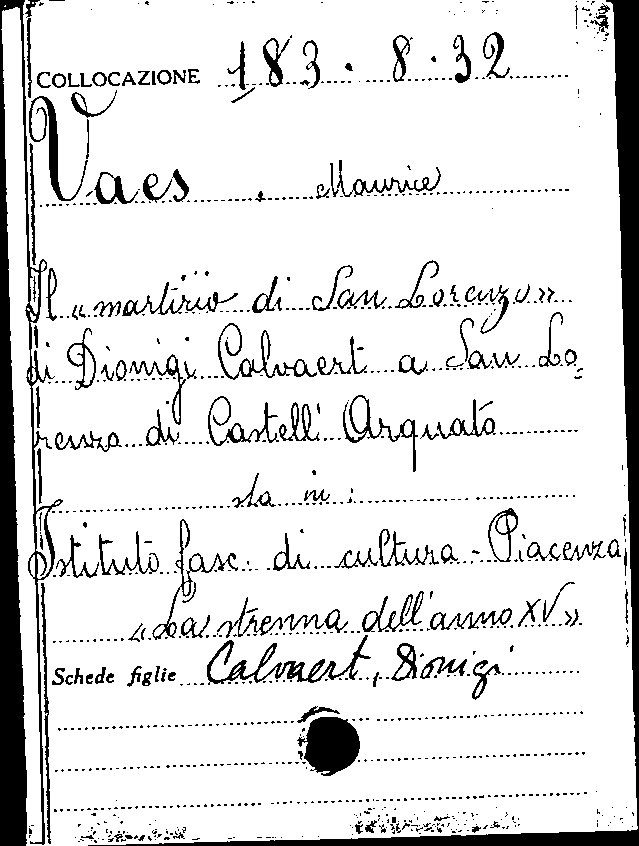 COLLOCAZIONE 183.8.32
Vaes. Maurice
Il «martirio di San Lorenzo»
di Dionigi Calvaert a San Lo-
renzo di Castell' Arquato
sta in:
Istituto fasc. di cultura - Piacenza
«La strenna dell'anno XV»
Schede figlie Calvaert, Dionigi